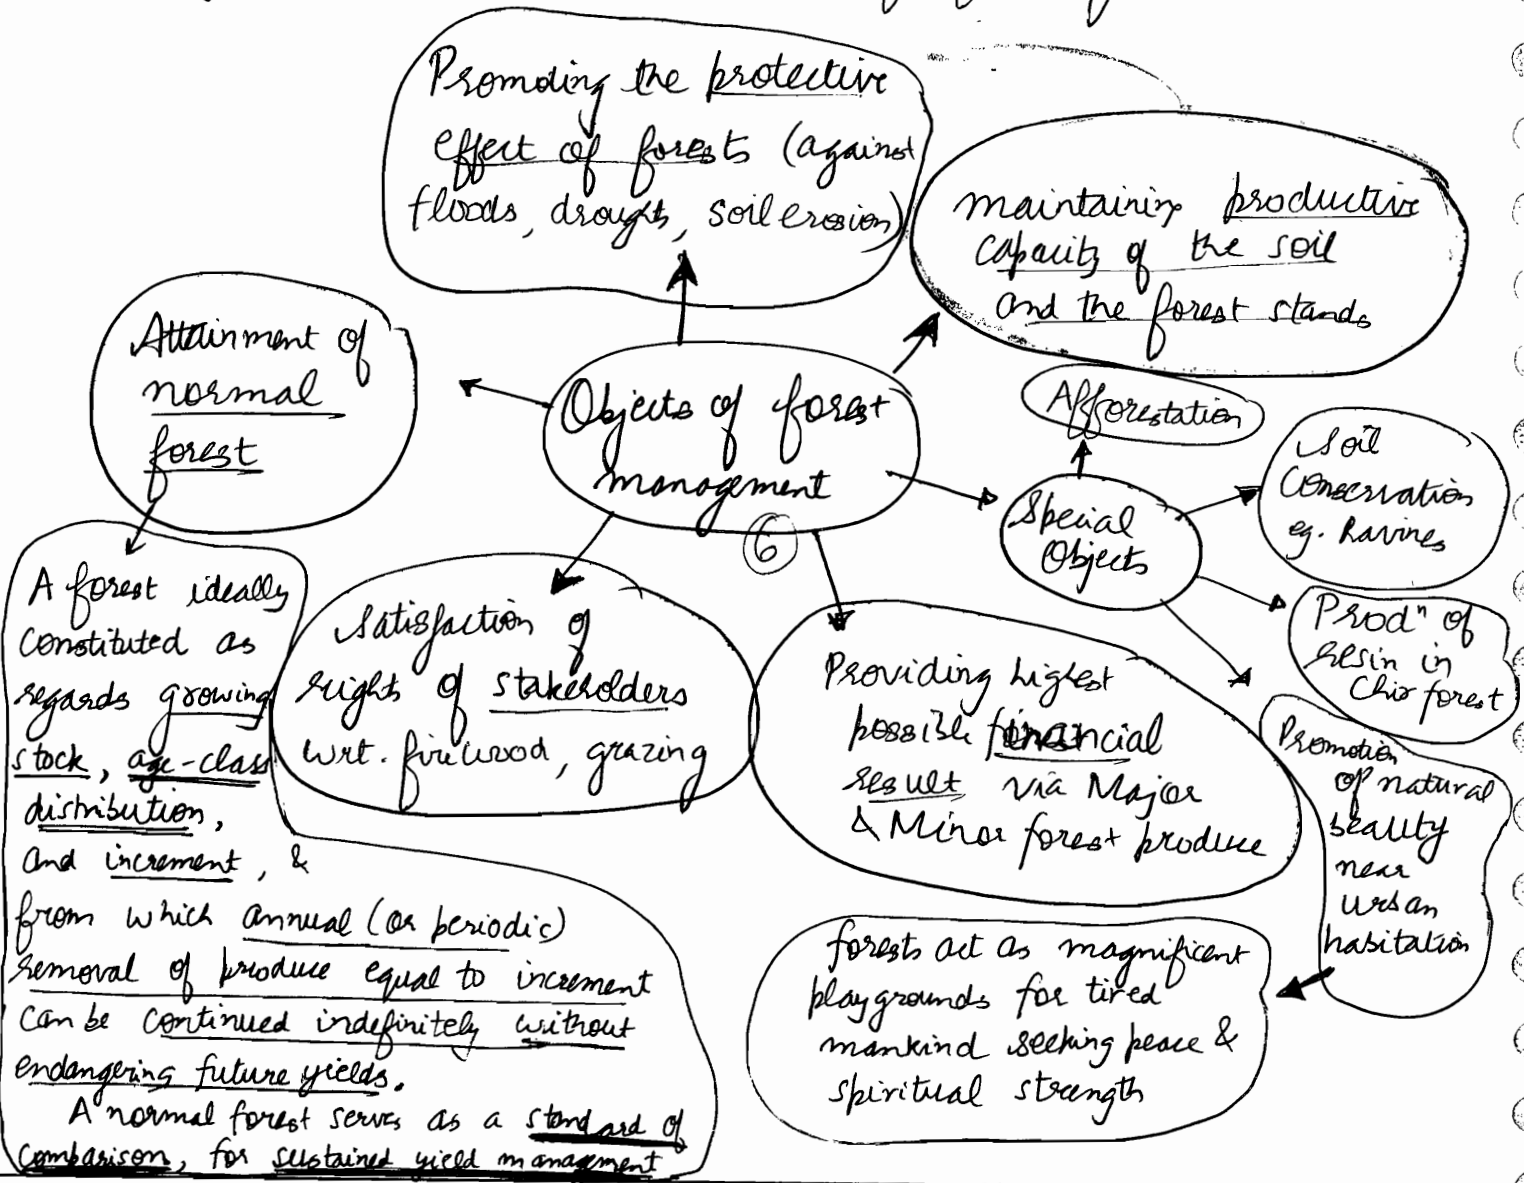 Promoting the protective
effect of forests (against
floods, drought, soil erosion)
maintaining productive
capacity of the soil
and the forest stands
Attainment of
normal
forest
Objects of forest
management
6
Afforestation
Soil
Conservation
eg. Ravines
Special
Objects
Prodⁿ of
resin in
Chir forest
Promotion
of natural
beauty
near
urban
habitation
A forest ideally
constituted as
regards growing
stock, age-class
distribution,
and increment, &
from which annual (or periodic)
removal of produce equal to increment
can be continued indefinitely without
endangering future yields.
A normal forest serves as a standard of
comparison, for sustained yield management
Satisfaction of
rights of stakeholders
wrt. firewood, grazing
Providing highest
possible financial
result via Major
& Minor forest produce
forests act as magnificent
playgrounds for tired
mankind seeking peace &
spiritual strength